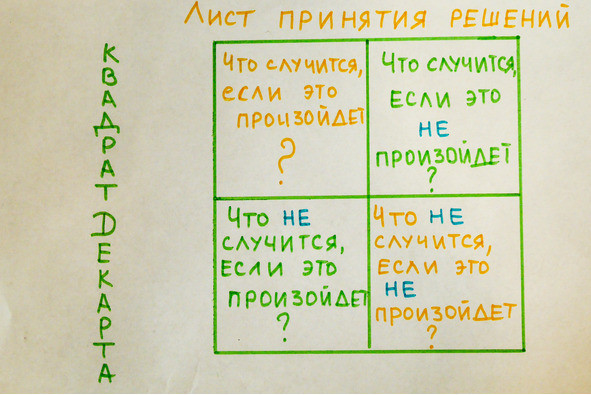 Лист принятия решений
КВАДРАТ ДЕКАРТА
Что случится,
если это
произойдет
?
Что случится,
если это
НЕ
произойдет
?
Что НЕ
случится,
если это
произойдет
?
Что НЕ
случится,
если это
НЕ
произойдет
?